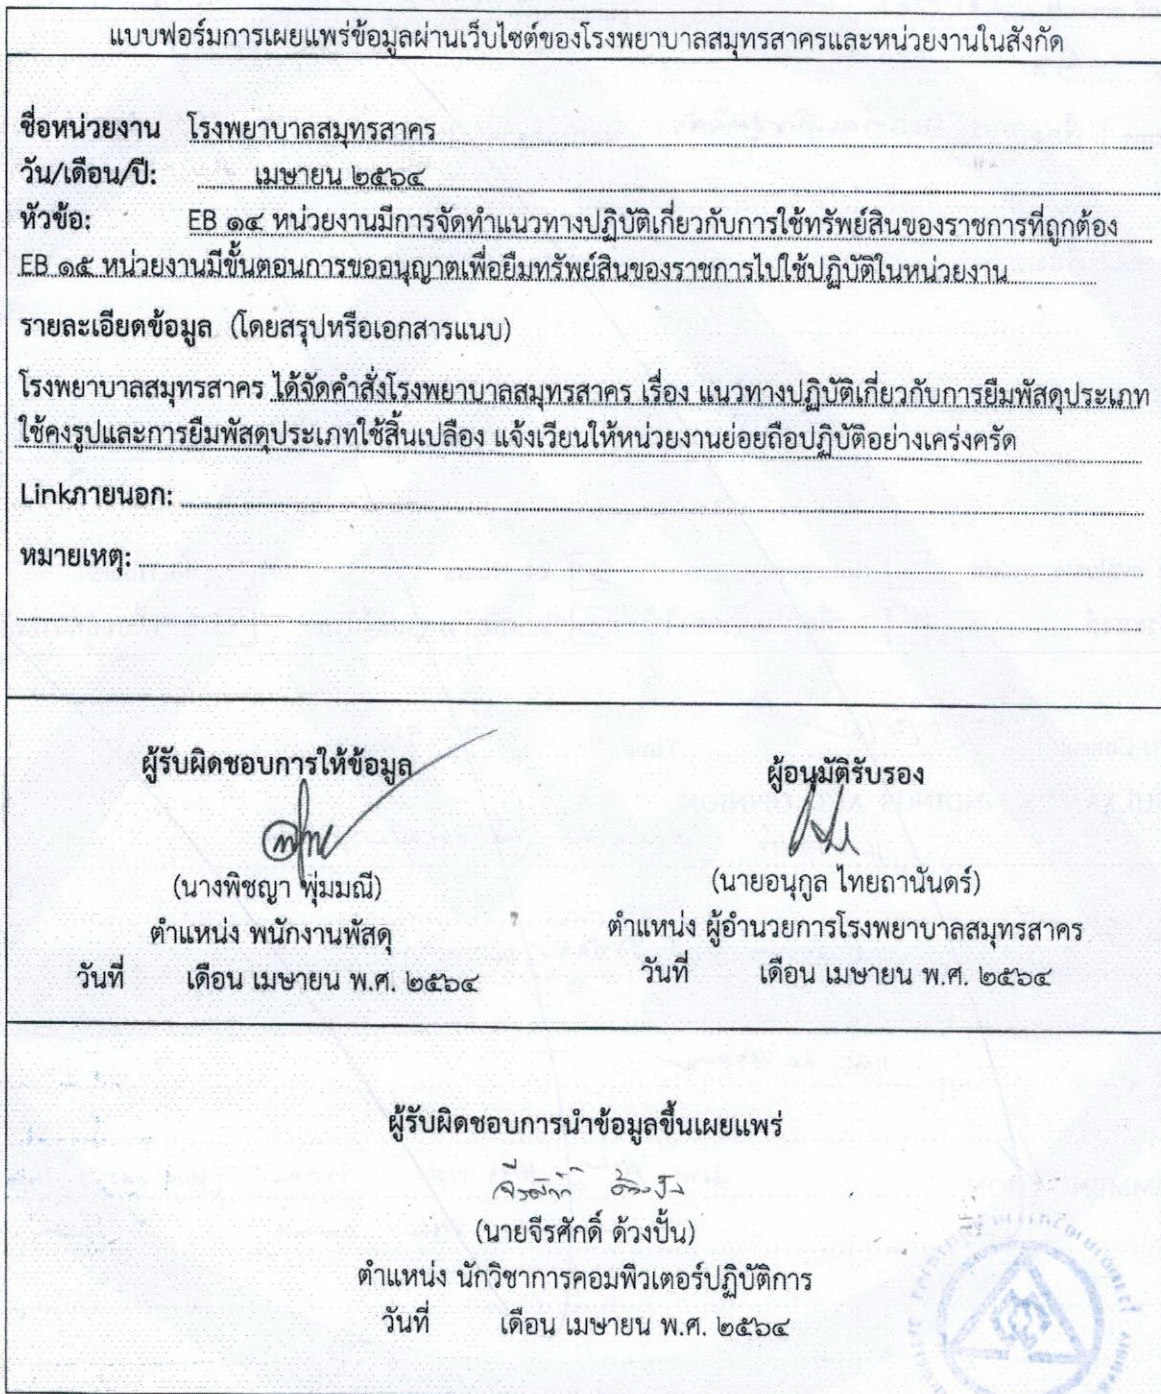 แบบฟอร์มการเผยแพร่ข้อมูลผ่านเว็บไซต์ของโรงพยาบาลสมุทรสาครและหน่วยงานในสังกัด
ชื่อหน่วยงาน โรงพยาบาลสมุทรสาคร
วัน/เดือน/ปี: เมษายน ๒๕๖๔
หัวข้อ: EB ๑๔ หน่วยงานมีการจัดทำแนวทางปฏิบัติเกี่ยวกับการใช้ทรัพย์สินของราชการที่ถูกต้อง
EB ๑๕ หน่วยงานมีขั้นตอนการขออนุญาตเพื่อยืมทรัพย์สินของราชการไปใช้ปฏิบัติในหน่วยงาน
รายละเอียดข้อมูล (โดยสรุปหรือเอกสารแนบ)
โรงพยาบาลสมุทรสาคร ได้จัดคำสั่งโรงพยาบาลสมุทรสาคร เรื่อง แนวทางปฏิบัติเกี่ยวกับการยืมพัสดุประเภท
ใช้คงรูปและการยืมพัสดุประเภทใช้สิ้นเปลือง แจ้งเวียนให้หน่วยงานย่อยถือปฏิบัติอย่างเคร่งครัด
Linkภายนอก:
หมายเหตุ:
ผู้รับผิดชอบการให้ข้อมูล
(นางพิชญา พุ่มมณี)
ตำแหน่ง พนักงานพัสดุ
วันที่ เดือน เมษายน พ.ศ. ๒๕๖๔
ผู้อนุมัติรับรอง
(นายอนุกูล ไทยถานันดร์)
ตำแหน่ง ผู้อำนวยการโรงพยาบาลสมุทรสาคร
วันที่ เดือน เมษายน พ.ศ. ๒๕๖๔
ผู้รับผิดชอบการนำข้อมูลขึ้นเผยแพร่
จีรศักดิ์ ด้วงปั้น
(นายจีรศักดิ์ ด้วงปั้น)
ตำแหน่ง นักวิชาการคอมพิวเตอร์ปฏิบัติการ
วันที่ เดือน เมษายน พ.ศ. ๒๕๖๔